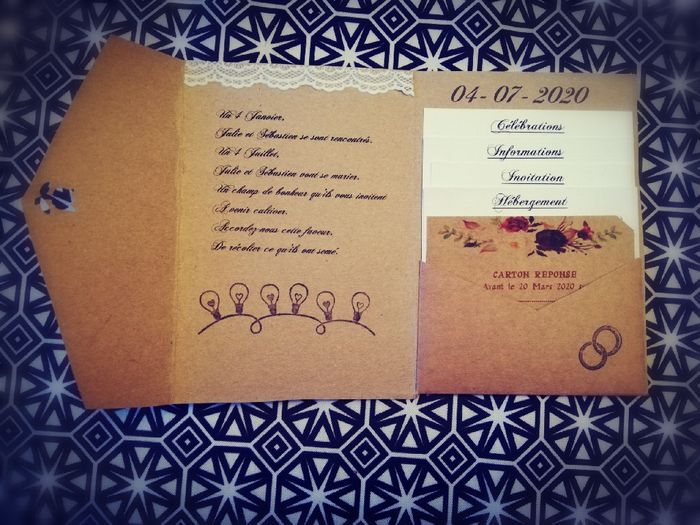 Un 4 Janvier,
Julie et Sébastien se sont rencontrés.
Un 4 Juillet,
Julie et Sébastien vont se marier.
Un champ de bonheur qu'ils vous invitent
A venir cultiver.
Accordez-nous cette faveur,
De récolter ce qu'ils ont semé.
04-07-2020
Célébrations
Informations
Invitation
Hébergement
CARTON REPONSE
Avant le 20 Mars 2020